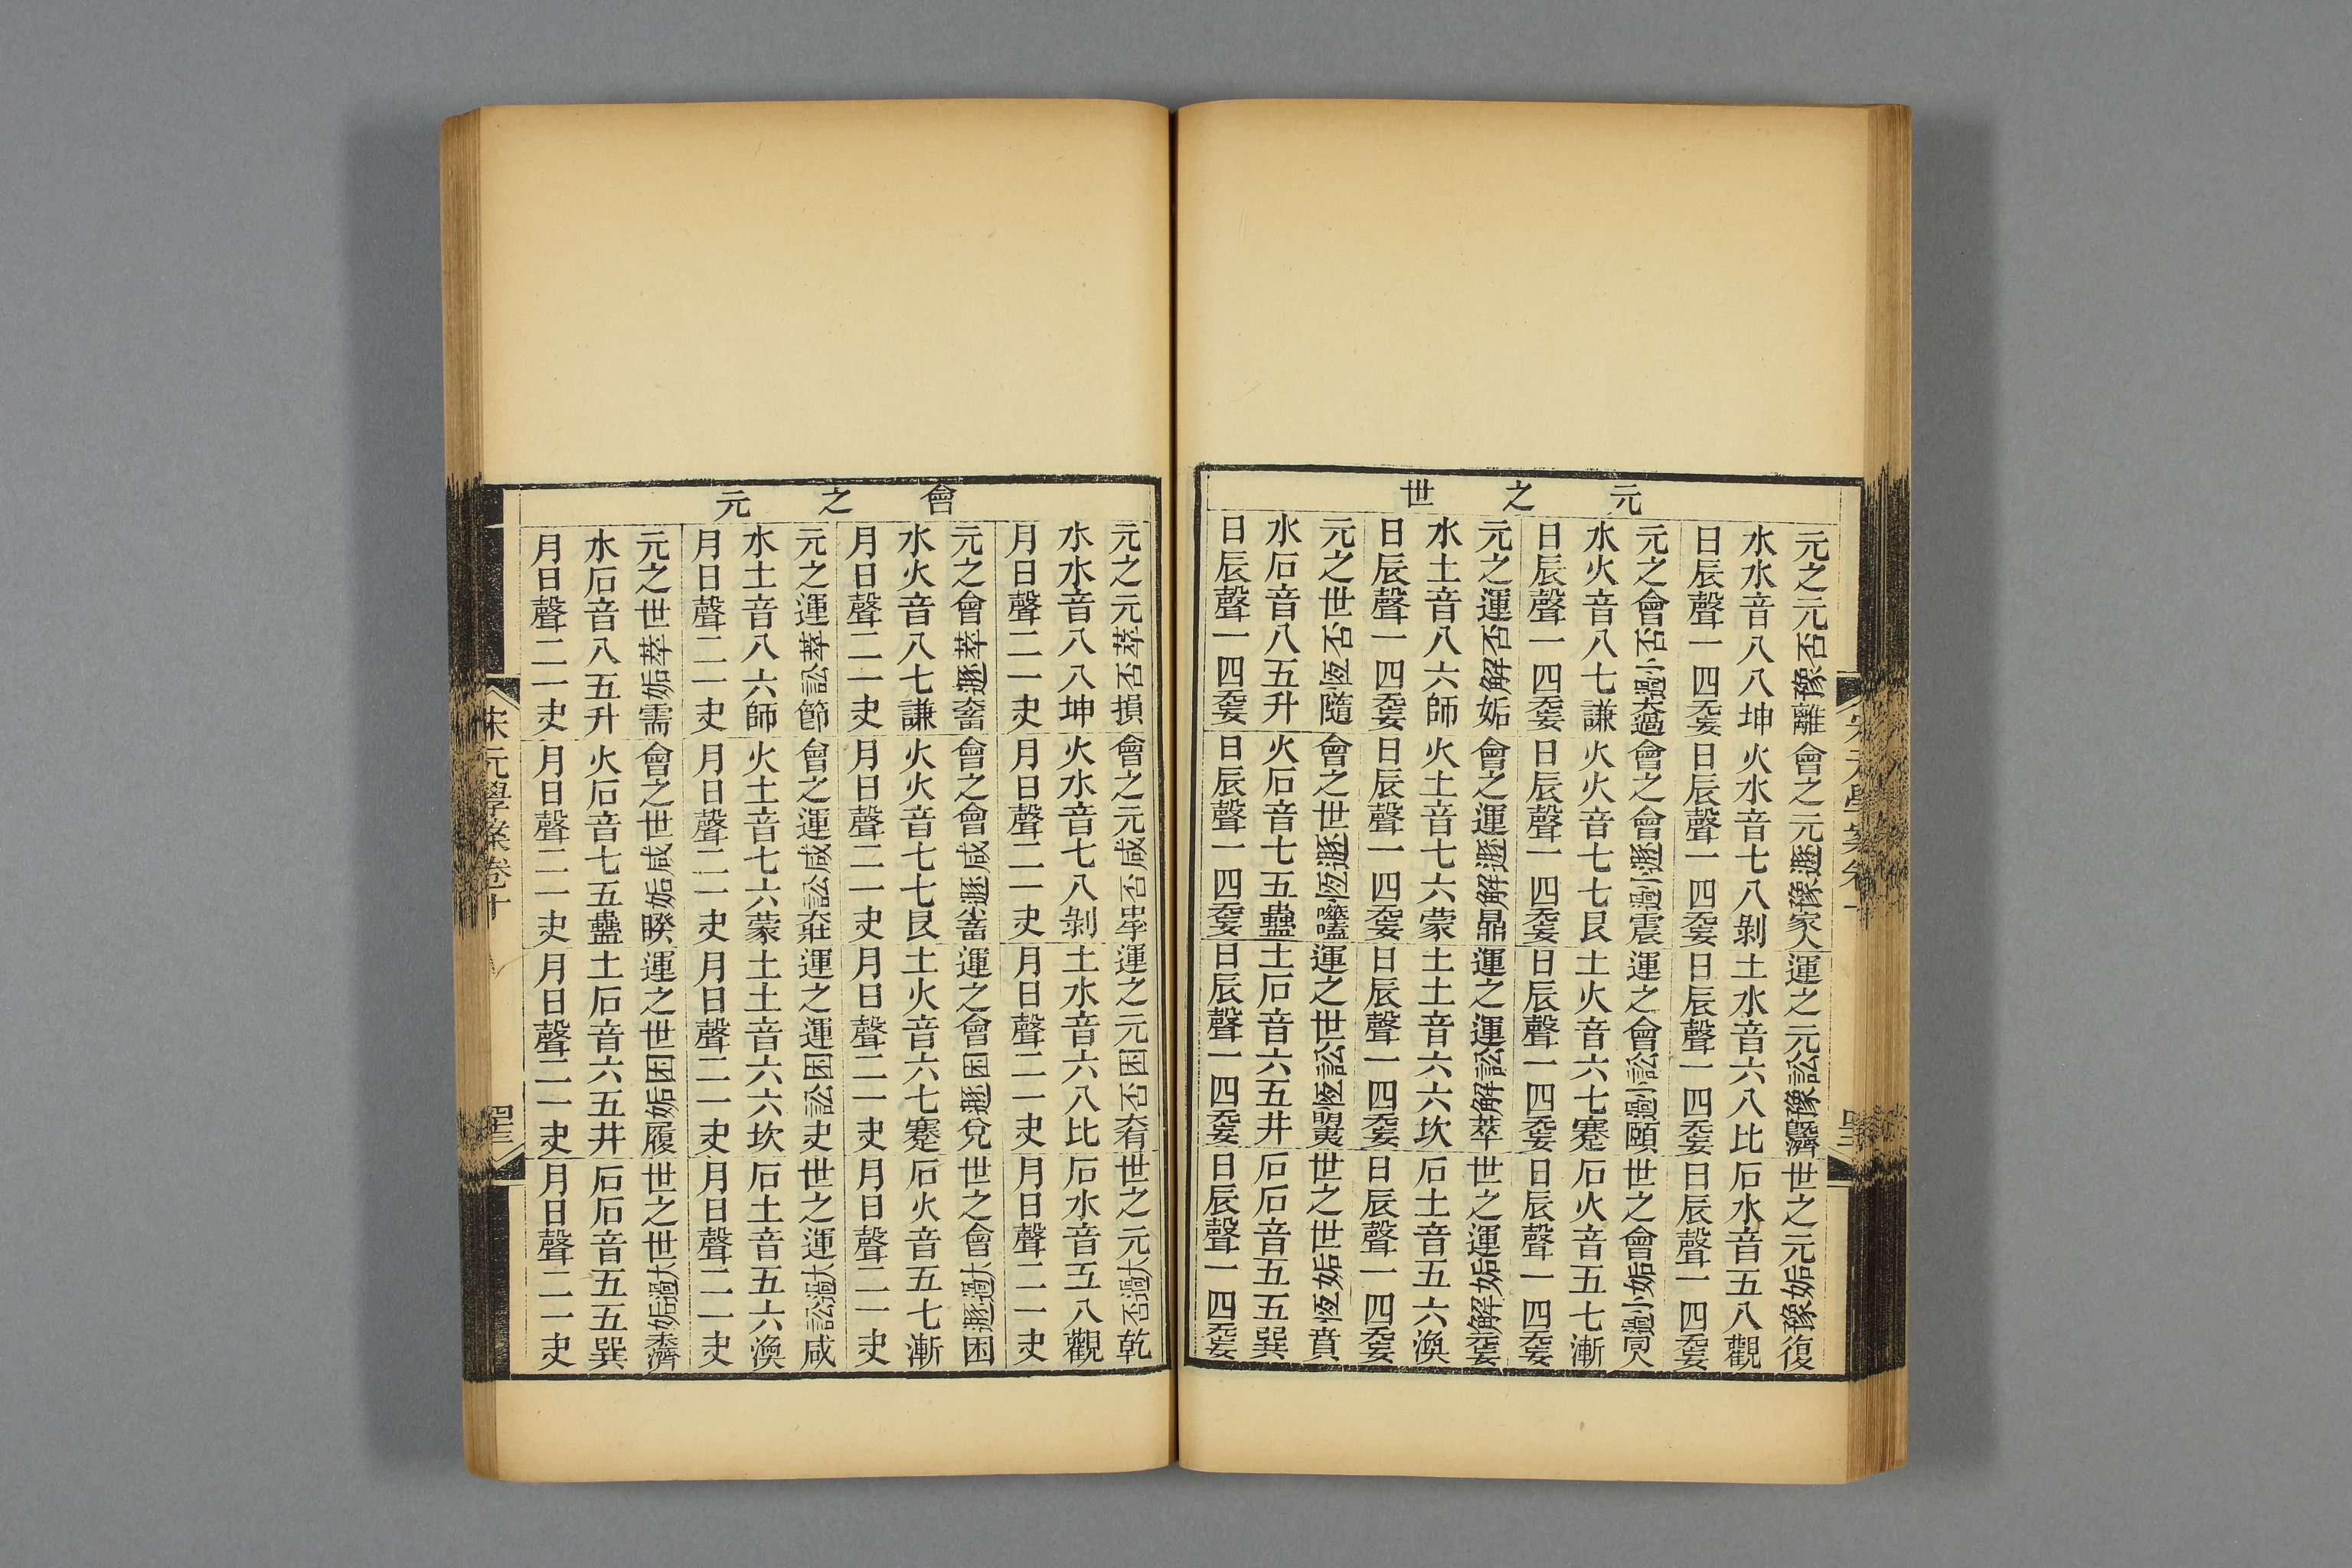 元之世
元之元否豫離會之元遯豫家人運之元訟豫旣濟世之元姤豫復
水水音八八坤火水音七八剝土水音六八比石水音五八觀
日辰聲一四无妄日辰聲一四无妄日辰聲一四无妄日辰聲一四无妄
元之會否小過大過會之會遯小過震運之會訟小過頤世之會姤小過同人
水火音八七謙火火音七七艮土火音六七蹇石火音五七漸
日辰聲一四无妄日辰聲一四无妄日辰聲一四无妄日辰聲一四无妄
元之運否解姤會之運遯解鼎運之運訟解萃世之運姤解无妄
水土音八六師火土音七六蒙土土音六六坎石土音五六渙
日辰聲一四无妄日辰聲一四无妄日辰聲一四无妄日辰聲一四无妄
元之世否恆隨會之世遯恆噬嗑運之世訟恆明夷世之世姤恆賁
水石音八五升火石音七五蠱土石音六五井石石音五五巽
日辰聲一四无妄日辰聲一四无妄日辰聲一四无妄日辰聲一四无妄
會之元
元之元萃否損會之元咸否中孚運之元困否大有世之元大過否乾
水水音八八坤火水音七八剝土水音六八比石水音五八觀
月日聲二一夬月日聲二一夬月日聲二一夬月日聲二一夬
元之會萃遯大畜會之會咸遯小畜運之會困遯兌世之會大過遯困
水火音八七謙火火音七七艮土火音六七蹇石火音五七漸
月日聲二一夬月日聲二一夬月日聲二一夬月日聲二一夬
元之運萃訟節會之運咸訟大壯運之運困訟夬世之運大過訟咸
水土音八六師火土音七六蒙土土音六六坎石土音五六渙
月日聲二一夬月日聲二一夬月日聲二一夬月日聲二一夬
元之世萃姤需會之世咸姤睽運之世困姤履世之世大過姤未濟
水石音八五升火石音七五蠱土石音六五井石石音五五巽
月日聲二一夬月日聲二一夬月日聲二一夬月日聲二一夬
宋元學案卷十